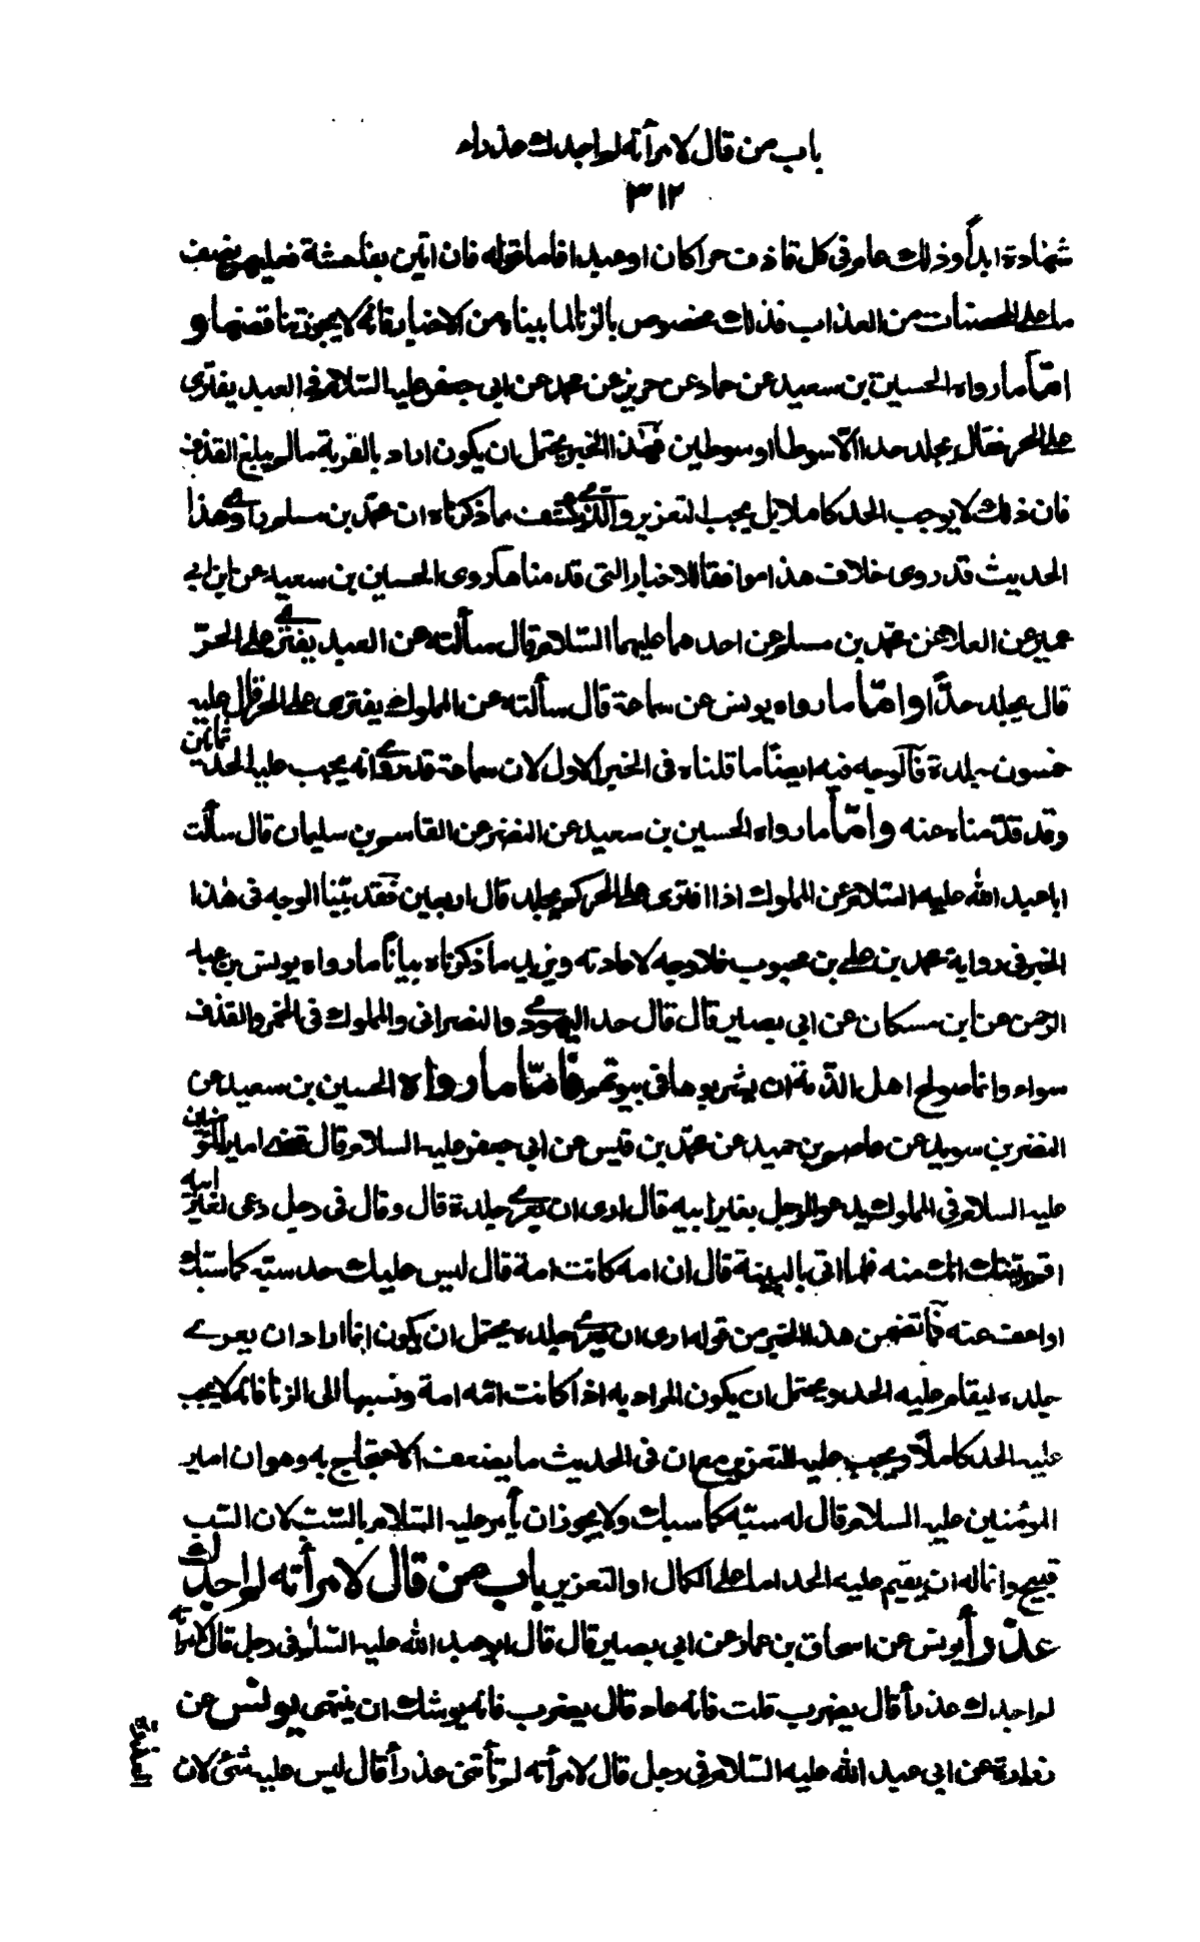 باب من قال لامرأته لم اجدك عذراء
٣١٢
شهادة ابداً وذلك عام فى كل قاذف حرا كان او عبدا فاما قوله فان اتين بفاحشة فعليهن نصف
ما على المحصنات من العذاب فذلك مخصوص بالزنا لما بيناه من الاخبار فانه لا يجوز تناقضها و
امّا ما رواه الحسين بن سعيد عن حماد عن حريز عن محمد عن ابى جعفر عليه السّلام فى العبد يفترى
على الحر فقال يجلد حدا الّا سوطا او سوطين فهذا الخبر يحتمل ان يكون اراد بالفرية ما لم يبلغ القذف
فان ذلك لا يوجب الحد كاملا بل يجب التعزير والّذى يكشف عما ذكرناه ان محمّد بن مسلم راوى هذا
الحديث قد روى خلاف هذا موافقا للاخبار التى قدمناها روى الحسين بن سعيد عن ابن ابى
عمير عن العلا عن محمّد بن مسلم عن احدهما عليهما السّلام قال سألته عن العبد يفترى على الحرّ
قال يجلد حدّا وامّا ما رواه يونس عن سماعة قال سألته عن المملوك يفترى على الحر قال عليه
خمسون جلدة فالوجه فيه ايضًا ما قلناه فى الخبر الاول لان سماعة قد روى انه يجب عليه الحد ثمانين
وقد قدّمناه عنه وامّا ما رواه الحسين بن سعيد عن النضر عن القاسم بن سليمان قال سألت
ابا عبد الله عليه السّلام عن المملوك اذا افترى على الحر كم يجلد قال اربعين فقد بيّنا الوجه فى هذا
الخبر فى رواية محمد بن على بن محبوب فلا وجه لاعادته ويزيد ما ذكرناه بيانًا ما رواه يونس بن عبد
الرحمن عن ابن مسكان عن ابى بصير قال قال حد اليهودى والنصرانى والمملوك فى الخمر والقذف
سواء وانما صولح اهل الذّمة ان يشربوها فى بيوتهم فامّا ما رواه الحسين بن سعيد عن
النضر بن سويد عن عاصم بن حميد عن محمّد بن قيس عن ابى جعفر عليه السلام قال قضى امير المؤمنين
عليه السلام فى المملوك يدعو الرجل بغير ابيه قال ارى ان يعرى جلدة قال وقال فى رجل دعى لغير ابيه
اقم بينتك امكنك منه فلما اتى بالبينة قال ان امه كانت امة قال ليس عليك حد سبّه كما سبّك
او اعف عنه فما تضمن هذا الخبر من قوله ارى ان يعرى جلده يحتمل ان يكون انما اراد ان يعرى
جلده ليقام عليه الحد ويحتمل ان يكون المراد به اذا كانت امّه امة ونسبها الى الزنا فانه لا يجب
عليه الحد كاملًا ويجب عليه التعزير مع ان فى الحديث ما يضعف الاحتجاج به وهو ان امير
المؤمنين عليه السلام قال له سبّه كما سبك ولا يجوز ان يأمر عليه السّلام بالسّب لان السّب
قبيح وانما له ان يقيم عليه الحد اما على الكمال او التعزير باب من قال لامرأته لم اجدك
عذراء يونس عن اسحاق بن عمار عن ابى بصير قال قال ابو عبد الله عليه السّلم فى رجل قال لامرأته
لم اجدك عذراء قال يضرب قلت فانه عاد قال يضرب فانه يوشك ان ينتهى يونس عن
زرارة عن ابى عبد الله عليه السّلام فى رجل قال لامرأته لم تأتنى عذراء قال ليس عليه شئ لان